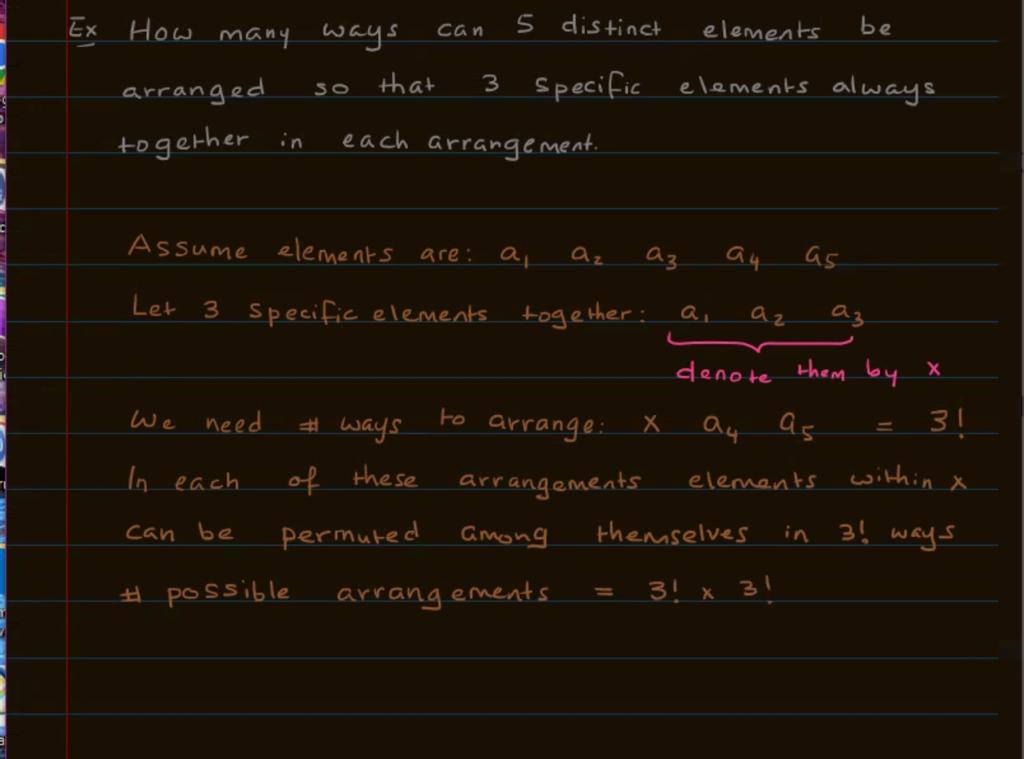 Ex How many ways can 5 distinct elements be
arranged so that 3 specific elements always
together in each arrangement.
Assume elements are: a₁ a₂ a₃ a₄ a₅
Let 3 specific elements together: a₁ a₂ a₃
denote them by x
We need # ways to arrange: x a₄ a₅ = 3!
In each of these arrangements elements within x
can be permuted among themselves in 3! ways
# possible arrangements = 3! x 3!